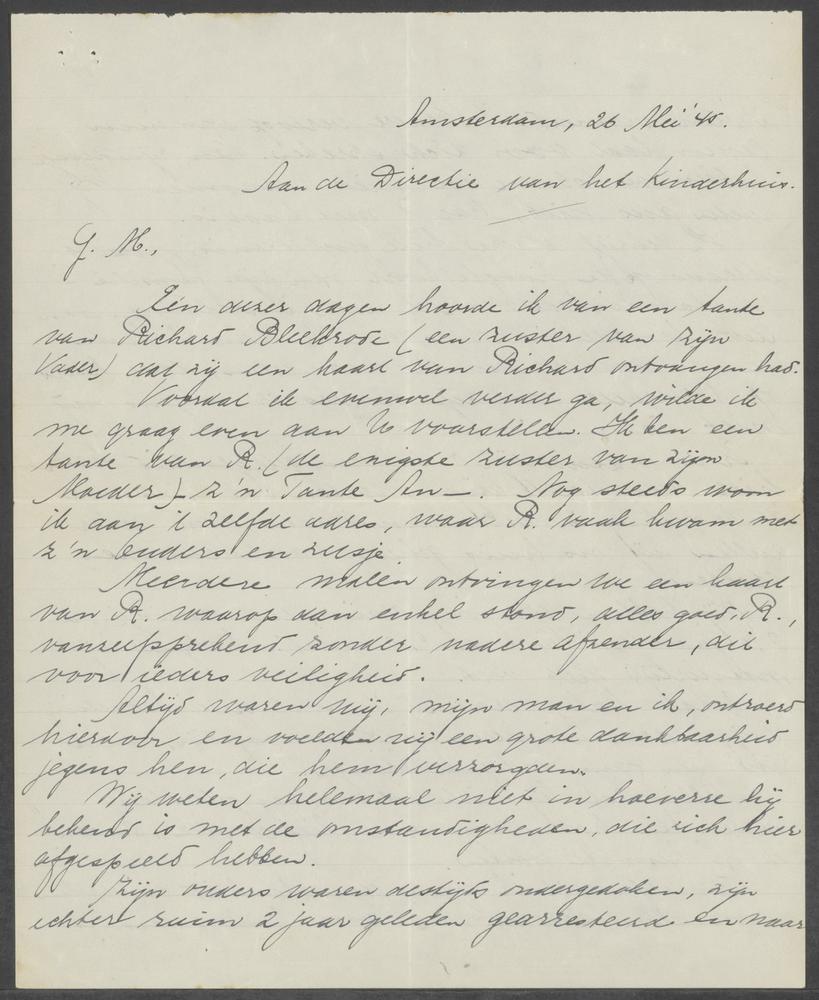 Amsterdam, 26 Mei '45.
Aan de Directie van het Kinderhuis.
G. M.,
Eén dezer dagen hoorde ik van een tante
van Richard Bleekrode (een zuster van zijn
Vader) dat zij een kaart van Richard ontvangen had.
Voordat ik evenwel verder ga, wilde ik
me graag even aan U voorstellen. Ik ben een
tante van R. (de enigste zuster van zijn
Moeder) – z'n Tante An –. Nog steeds woon
ik aan 't zelfde adres, waar R. vaak kwam met
z'n ouders en zusje.
Meerdere malen ontvingen we een kaart
van R. waarop dan enkel stond, alles goed, R.,
vanzelfsprekend zonder nadere afzender, dit
voor ieders veiligheid.
Altijd waren wij, mijn man en ik, ontroerd
hierdoor en voelden wij een grote dankbaarheid
jegens hen, die hem verzorgden.
Wij weten helemaal niet in hoeverre hij
bekend is met de omstandigheden, die zich hier
afgespeeld hebben.
Zijn ouders waren destijds ondergedoken, zijn
echter ruim 2 jaar geleden gearresteerd en naar